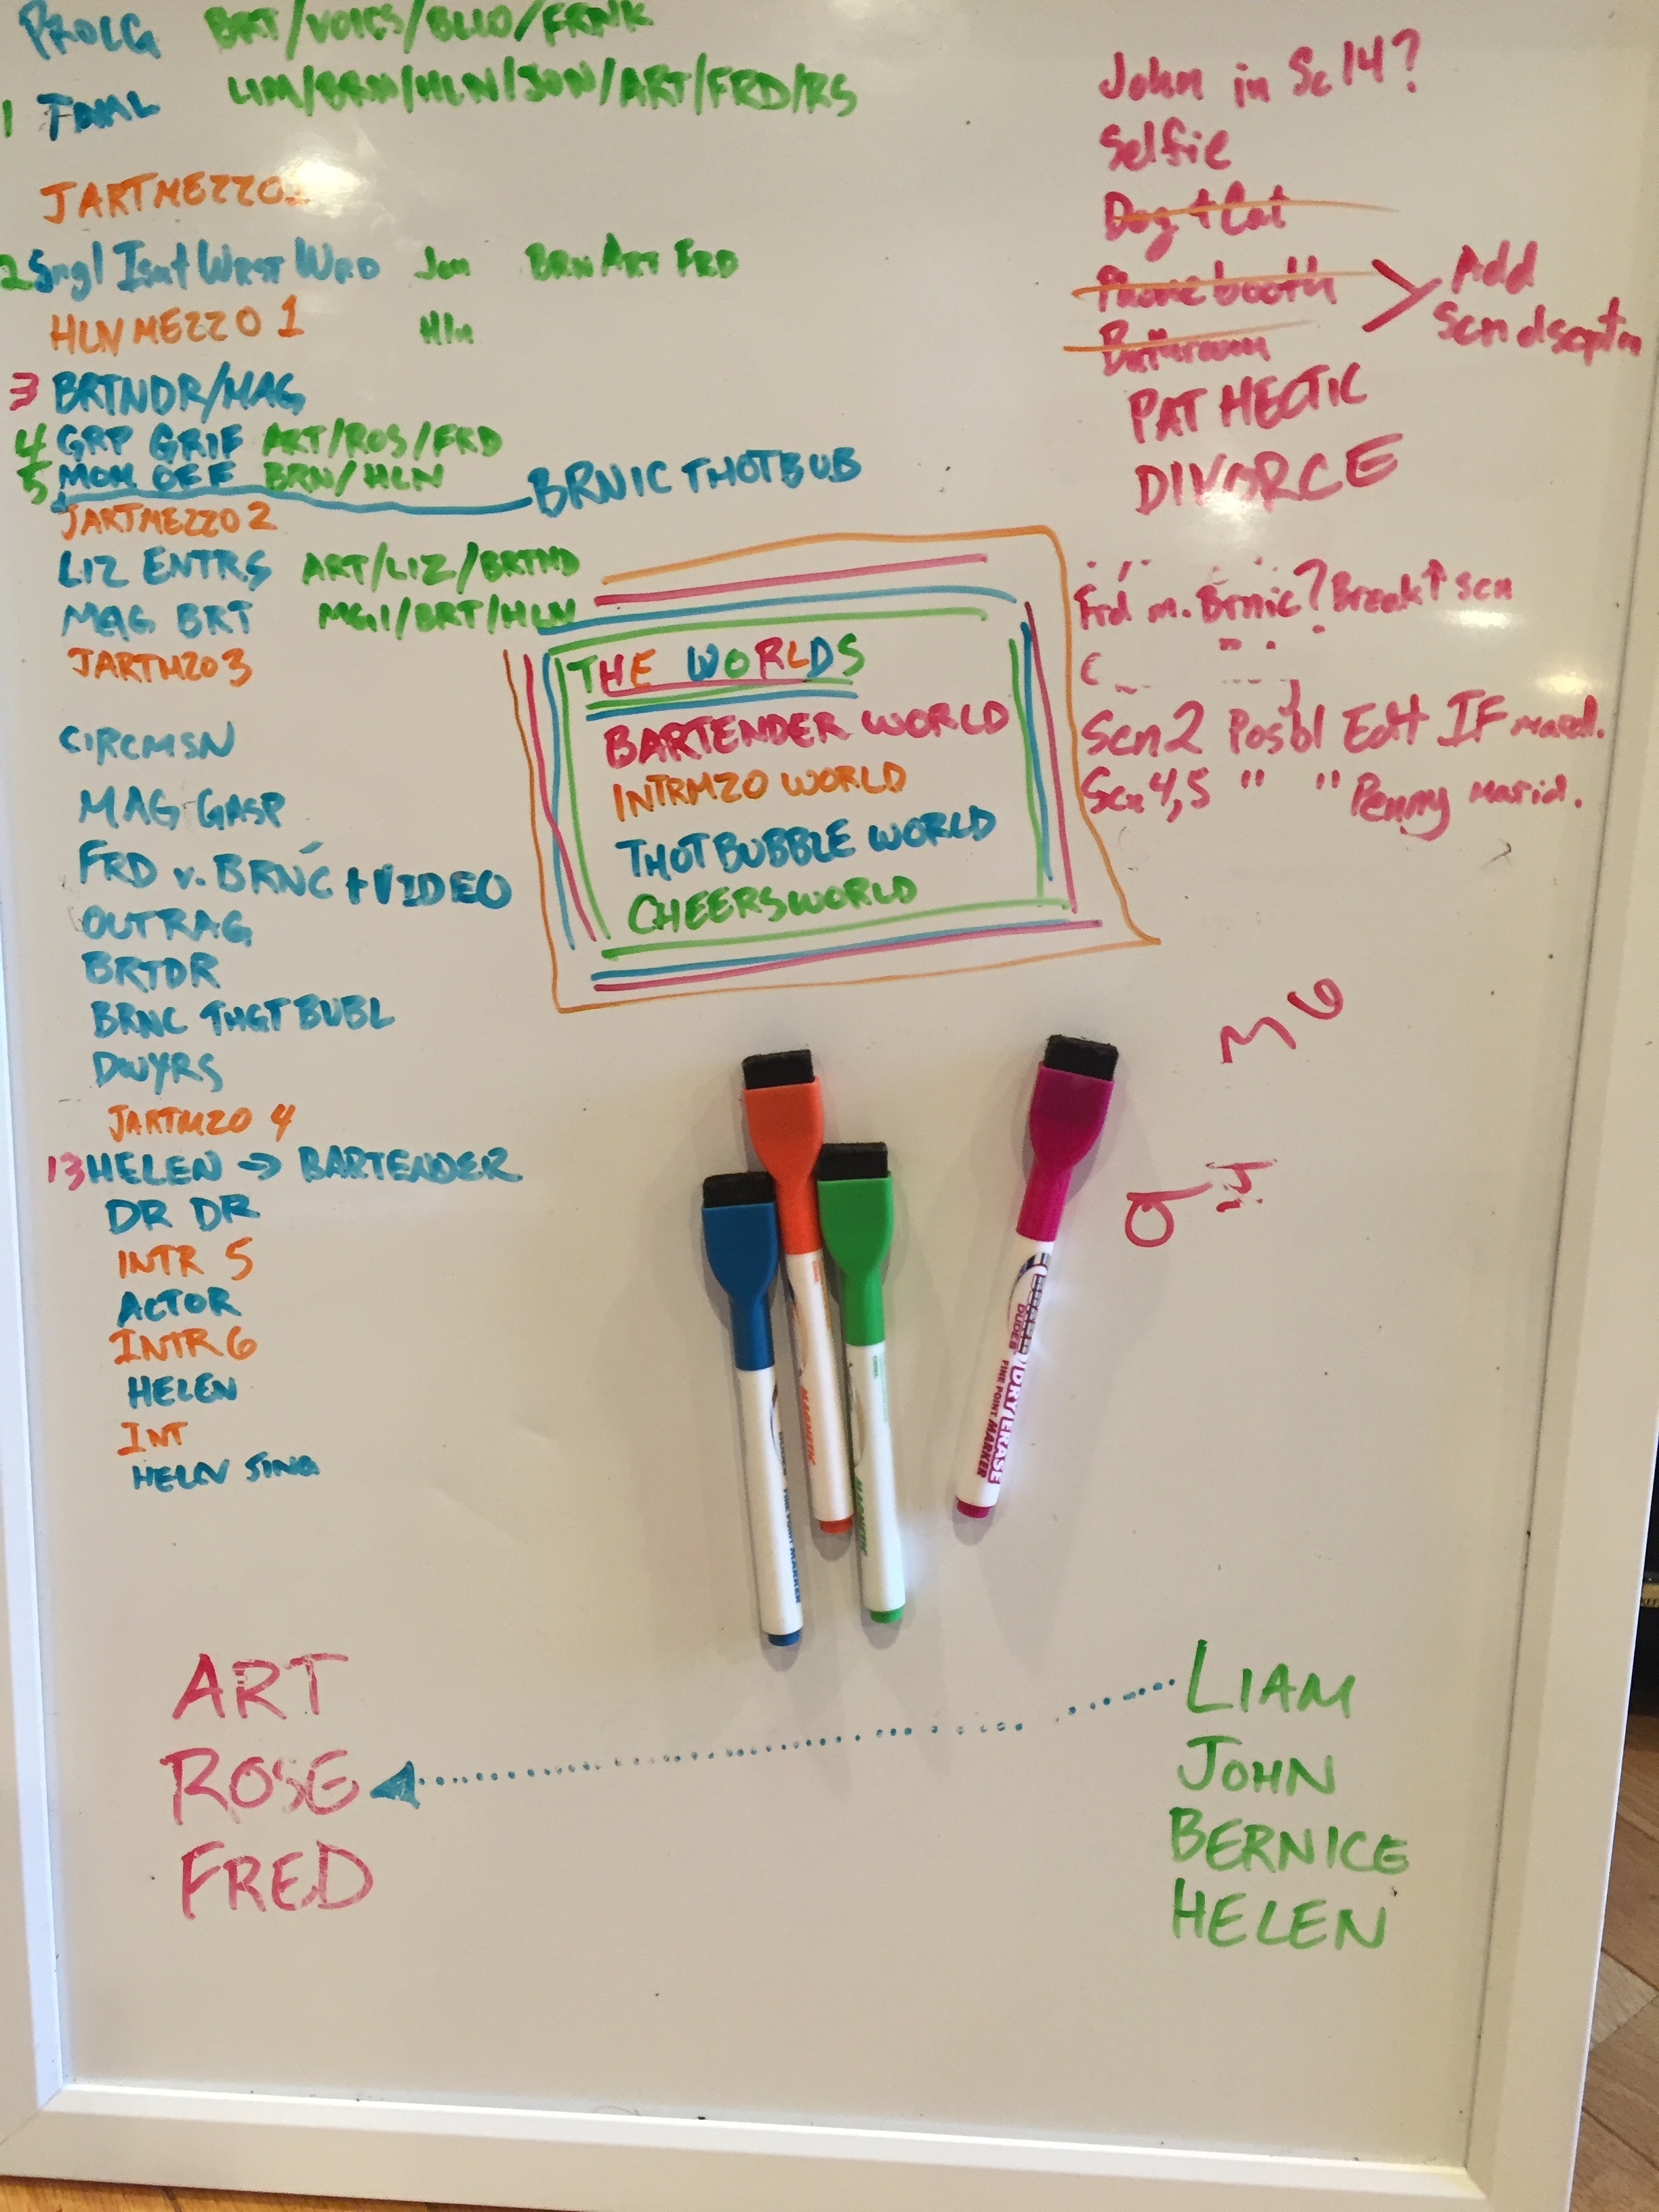 PROLG BRT/VOICS/BLLO/FRNK
1 FNRL LIM/BRN/HLN/JON/ART/FRD/RS
JARTMEZZO
2 Sngl Isnt Wrst Wrd Jon BRN ART FRD
HLN MEZZO 1 Hln
3 BRTNDR/MAG
4 GRP GRIF ART/ROS/FRD
5 MOM OFF BRN/HLN
BRNIC THOTBUB
JARTMEZZO 2
LIZ ENTRS ART/LIZ/BRTND
MAG BRT MGI/BRT/HLN
JARTMZO 3
CIRCMSN
MAG GASP
FRD v. BRNC + VIDEO
OUTRAG
BRTDR
BRNC THGT BUBL
DWYRS
JARTMZO 4
13 HELEN → BARTENDER
DR DR
INTR 5
ACTOR
INTR 6
HELEN
INT
HELN SING
THE WORLDS
BARTENDER WORLD
INTRMZO WORLD
THOTBUBBLE WORLD
CHEERSWORLD
John in Sc 14?
Selfie
Dog + Cat
Phone booth
Bathroom
Add
Scn dscptn
PAT HECTIC
DIVORCE
Frd m. Brnic? Break↑ scn
Scn2 Posbl Edt IF mared.
Scn 4,5 " " Penny marid.
3 6
9 14
DUDES DRY ERASE
FINE POINT MARKER
MAGNETIC
ART
ROSE
FRED
LIAM
JOHN
BERNICE
HELEN